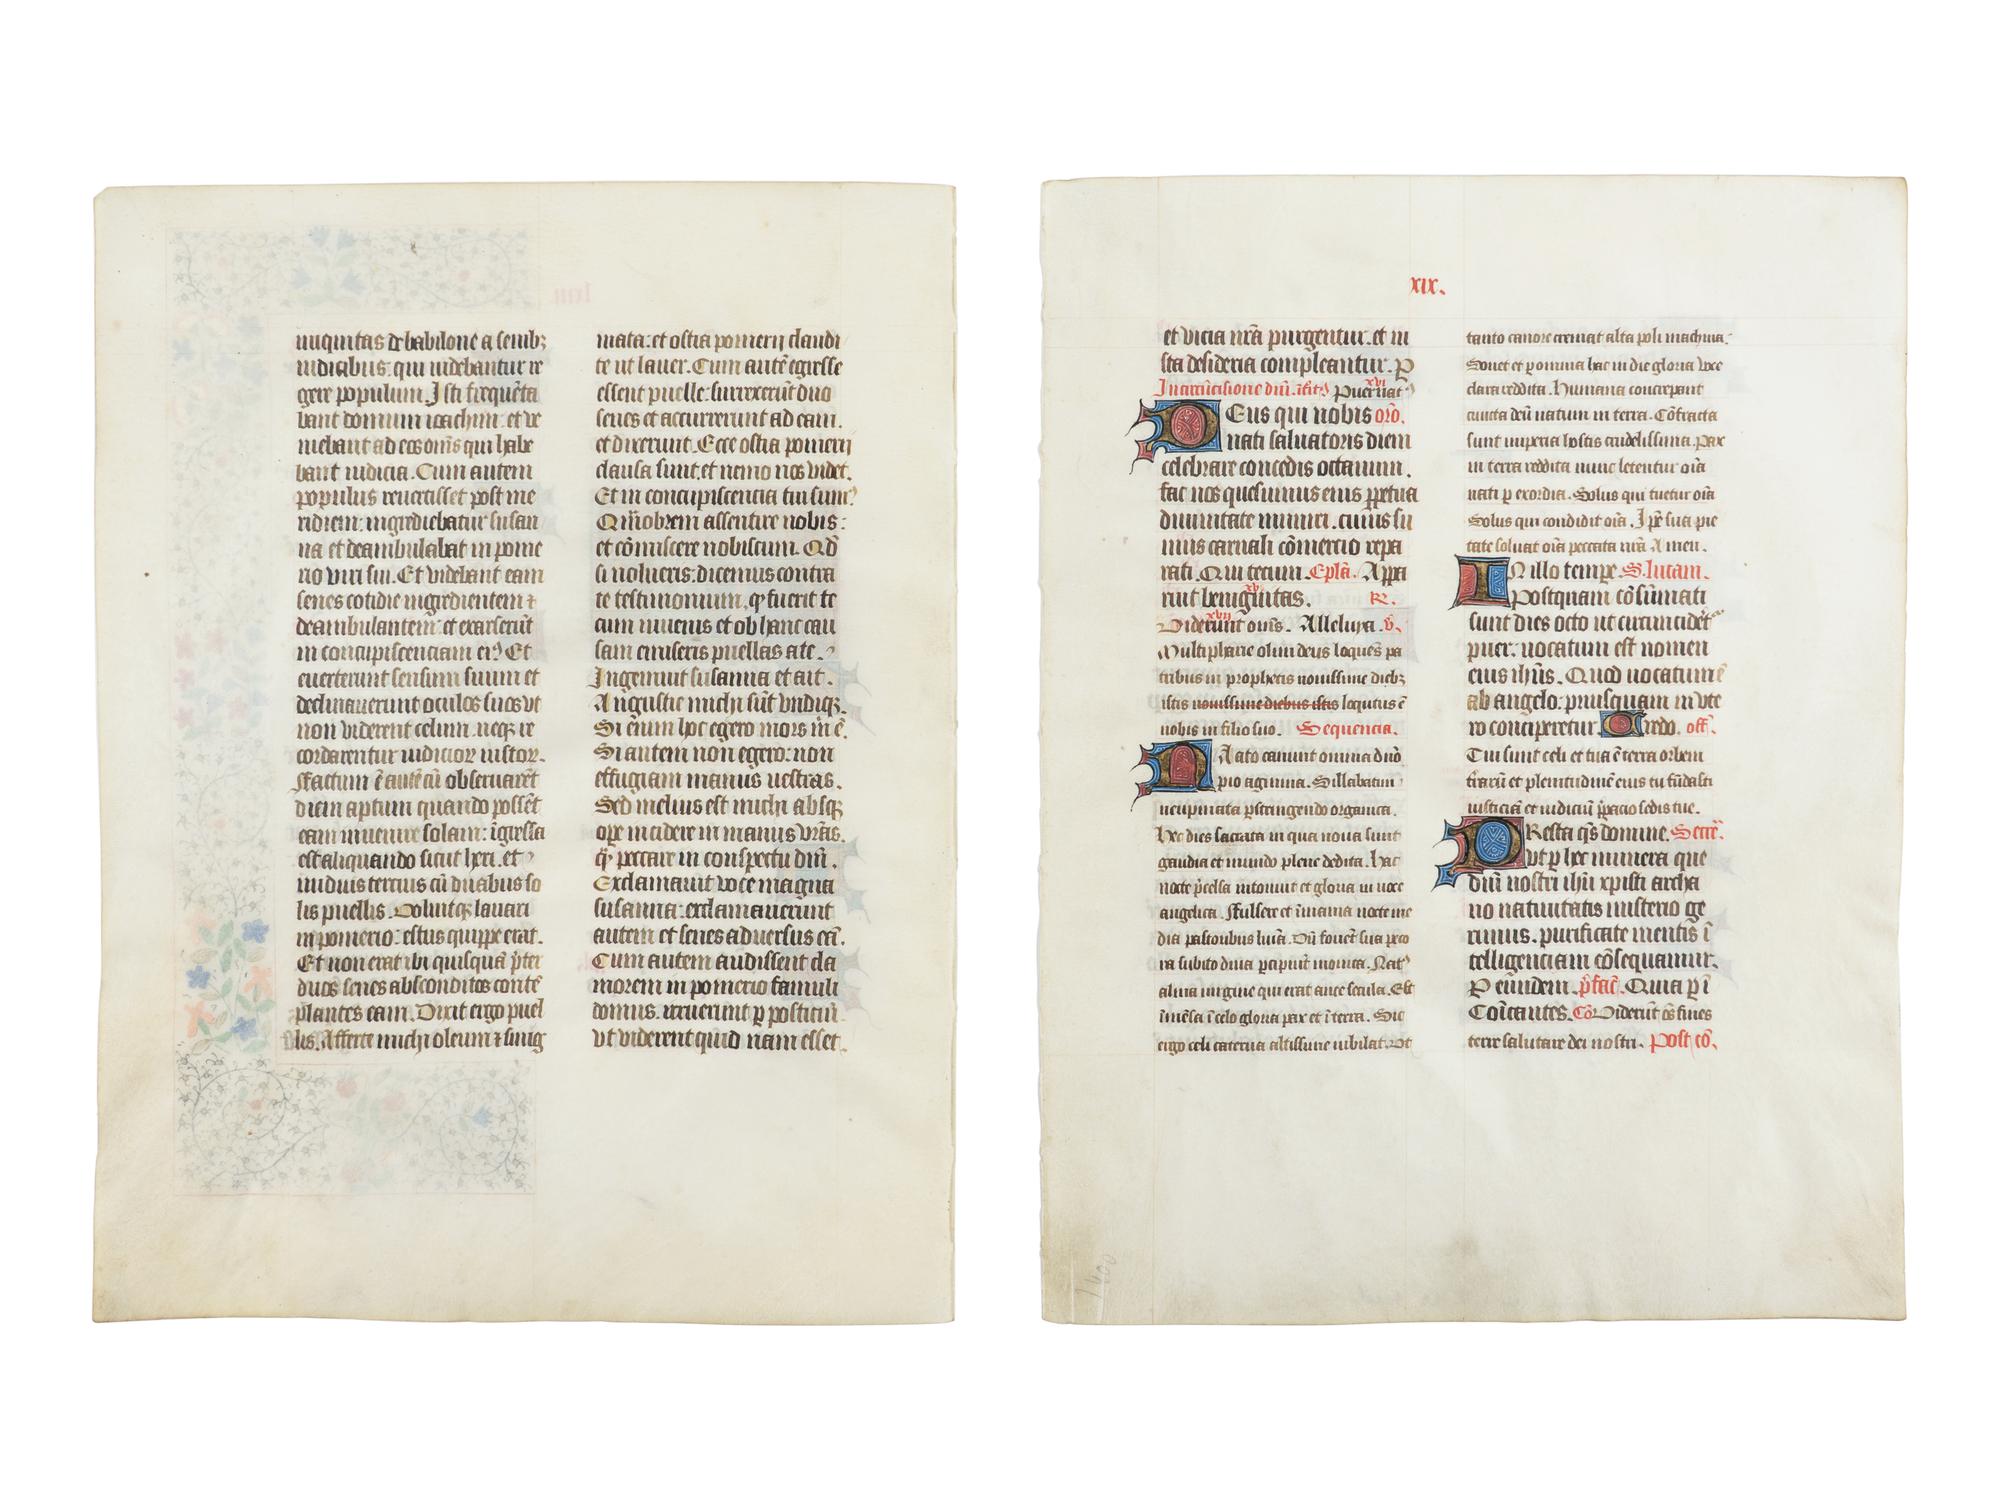 iniquitas de babilone a senibꝫ
iudicibus: qui uidebantur re
gere populum. Isti frequēta
bant domum ioachim: et ve
niebant ad eos om̄s qui habe
bant iudicia. Cum autem
populus reuertisset post me
ridiem: ingrediebatur susan
na et deambulabat in pome
rio viri sui. Et videbant eam
senes cotidie ingredientem ⁊
deambulantem: et exarserūt
in concupiscenciam eiꝰ Et
euerterunt sensum suum et
declinauerunt oculos suos vt
non viderent celum. neqꝫ re
cordarentur iudicioꝝ iustoꝝ.
Factum ē autē cū obseruarēt
diem aptum quando possēt
eam inuenire solam: īgressa
est aliquando sicut heri. et
nudius tercius cū duabus so
lis puellis. Voluitqꝫ lauari
in pomerio: estus quippe erat.
Et non erat ibi quisquā p̄ter
duos senes absconditos contē
plantes eam. Dixit ergo puel
lis. Afferte michi oleum ⁊ smig
mata: et ostia pomerij claudi
te ut lauer. Cum autē egresse
essent puelle: surrexerūt duo
senes et accurrerunt ad eam.
et dixerunt. Ecce ostia pomerij
clausa sunt. et nemo nos videt.
Et in concupiscencia tui sumꝰ
Quāobrem assentire nobis:
et cōmiscere nobiscum. Qd̄
si nolueris: dicemus contra
te testimonium, qꝫ fuerit te
cum iuuenis et ob hanc cau
sam emiseris puellas a te.
Ingemuit susanna et ait.
Angustie michi sūt vndiqꝫ.
Si enim hoc egero mors m̄ ē.
Si autem non egero: non
effugiam manus uestras.
Sed melius est michi absqꝫ
oꝑe incidere in manus vr̄as.
q̄ꝫ peccare in conspectu dn̄i.
Exclamauit voce magna
susanna: exclamauerunt
autem et senes aduersus eā.
Cum autem audissent cla
morem in pomerio famuli
domus. irruerunt ꝑ posticū
vt viderent quid nam esset.
xix.
et vicia nr̄a purgentur. et iu
sta desideria compleantur. ꝑ
In circūcisione dn̄i. Puer natꝰ
Deus qui nobis oro.
nati saluatoris diem
celebrare concedis octauum.
fac nos quesumus eius ꝑpetua
diuinitate muniri. cuius su
mus carnali cōmercio repa
rati. Qui tecum. Epl̄a. Appa
ruit benignitas. R.
xvii
Viderunt om̄s. Alleluya. v̄.
Multipharie olim deus loquēs pa
tribus in prophetis nouissime diebꝫ
istis nouissime diebus istis loqutus ē
nobis in filio suo. Sequencia.
Nato canunt omnia dn̄o
pio agmina. Sillabatim
neupmata ꝑstringendo organica.
Hec dies sacrata in qua noua sunt
gaudia et mundo plene dedita. Hac
nocte p̄celsa intonuit et gloria in uoce
angelica. Fulsere et īmania nocte me
dia pastoribus luīa. Dū fouēt sua peco
ra subito diua ꝑcipiūt monita. Natꝰ
alma uirgine qui erat ante secula. Est
īmēsa ī celo gloria pax et ī terra. Sic
ergo celi caterua altissime iubilat. Vt
tanto canore tremat alta poli machina.
Sonet et ꝑ omnia hac in die gloria voce
clara reddita. Humana concrepant
cuncta deū natum in terra. Cōfracta
sunt imperia hostis crudelissima. Pax
in terra reddita nunc letentur oīa
nati ꝑ exordia. Solus qui tuetur oīa
Solus qui condidit oīa. Ip̄e sua pie
tate soluat oīa peccata nr̄a Amen.
In illo tempe. S. lucam.
Postquam cōsūmati
sunt dies octo ut circuncidet̄
puer. uocatum est nomen
eius ih̄us. Quod uocatum ē
ab angelo: priusquam in vte
ro conciperetur. Credo. off.
Tui sunt celi et tua ē terra orbem
trarū et plenitudinē eius tu fūdasti
iusticiā et iudiciū p̄pacio sedis tue.
Presta q̄s domine. Secre.
vt ꝑ hec munera que
dn̄i nostri ih̄u xpisti archa
no natiuitatis misterio ge
rimus. purificate mentis ī
telligenciam cōsequamur.
ꝑ eūndem. p̄fac̄. Quia ꝑ ī
Cōicantes. Cō Viderūt oēs fines
terre salutare dei nostri. Post cō.
1400